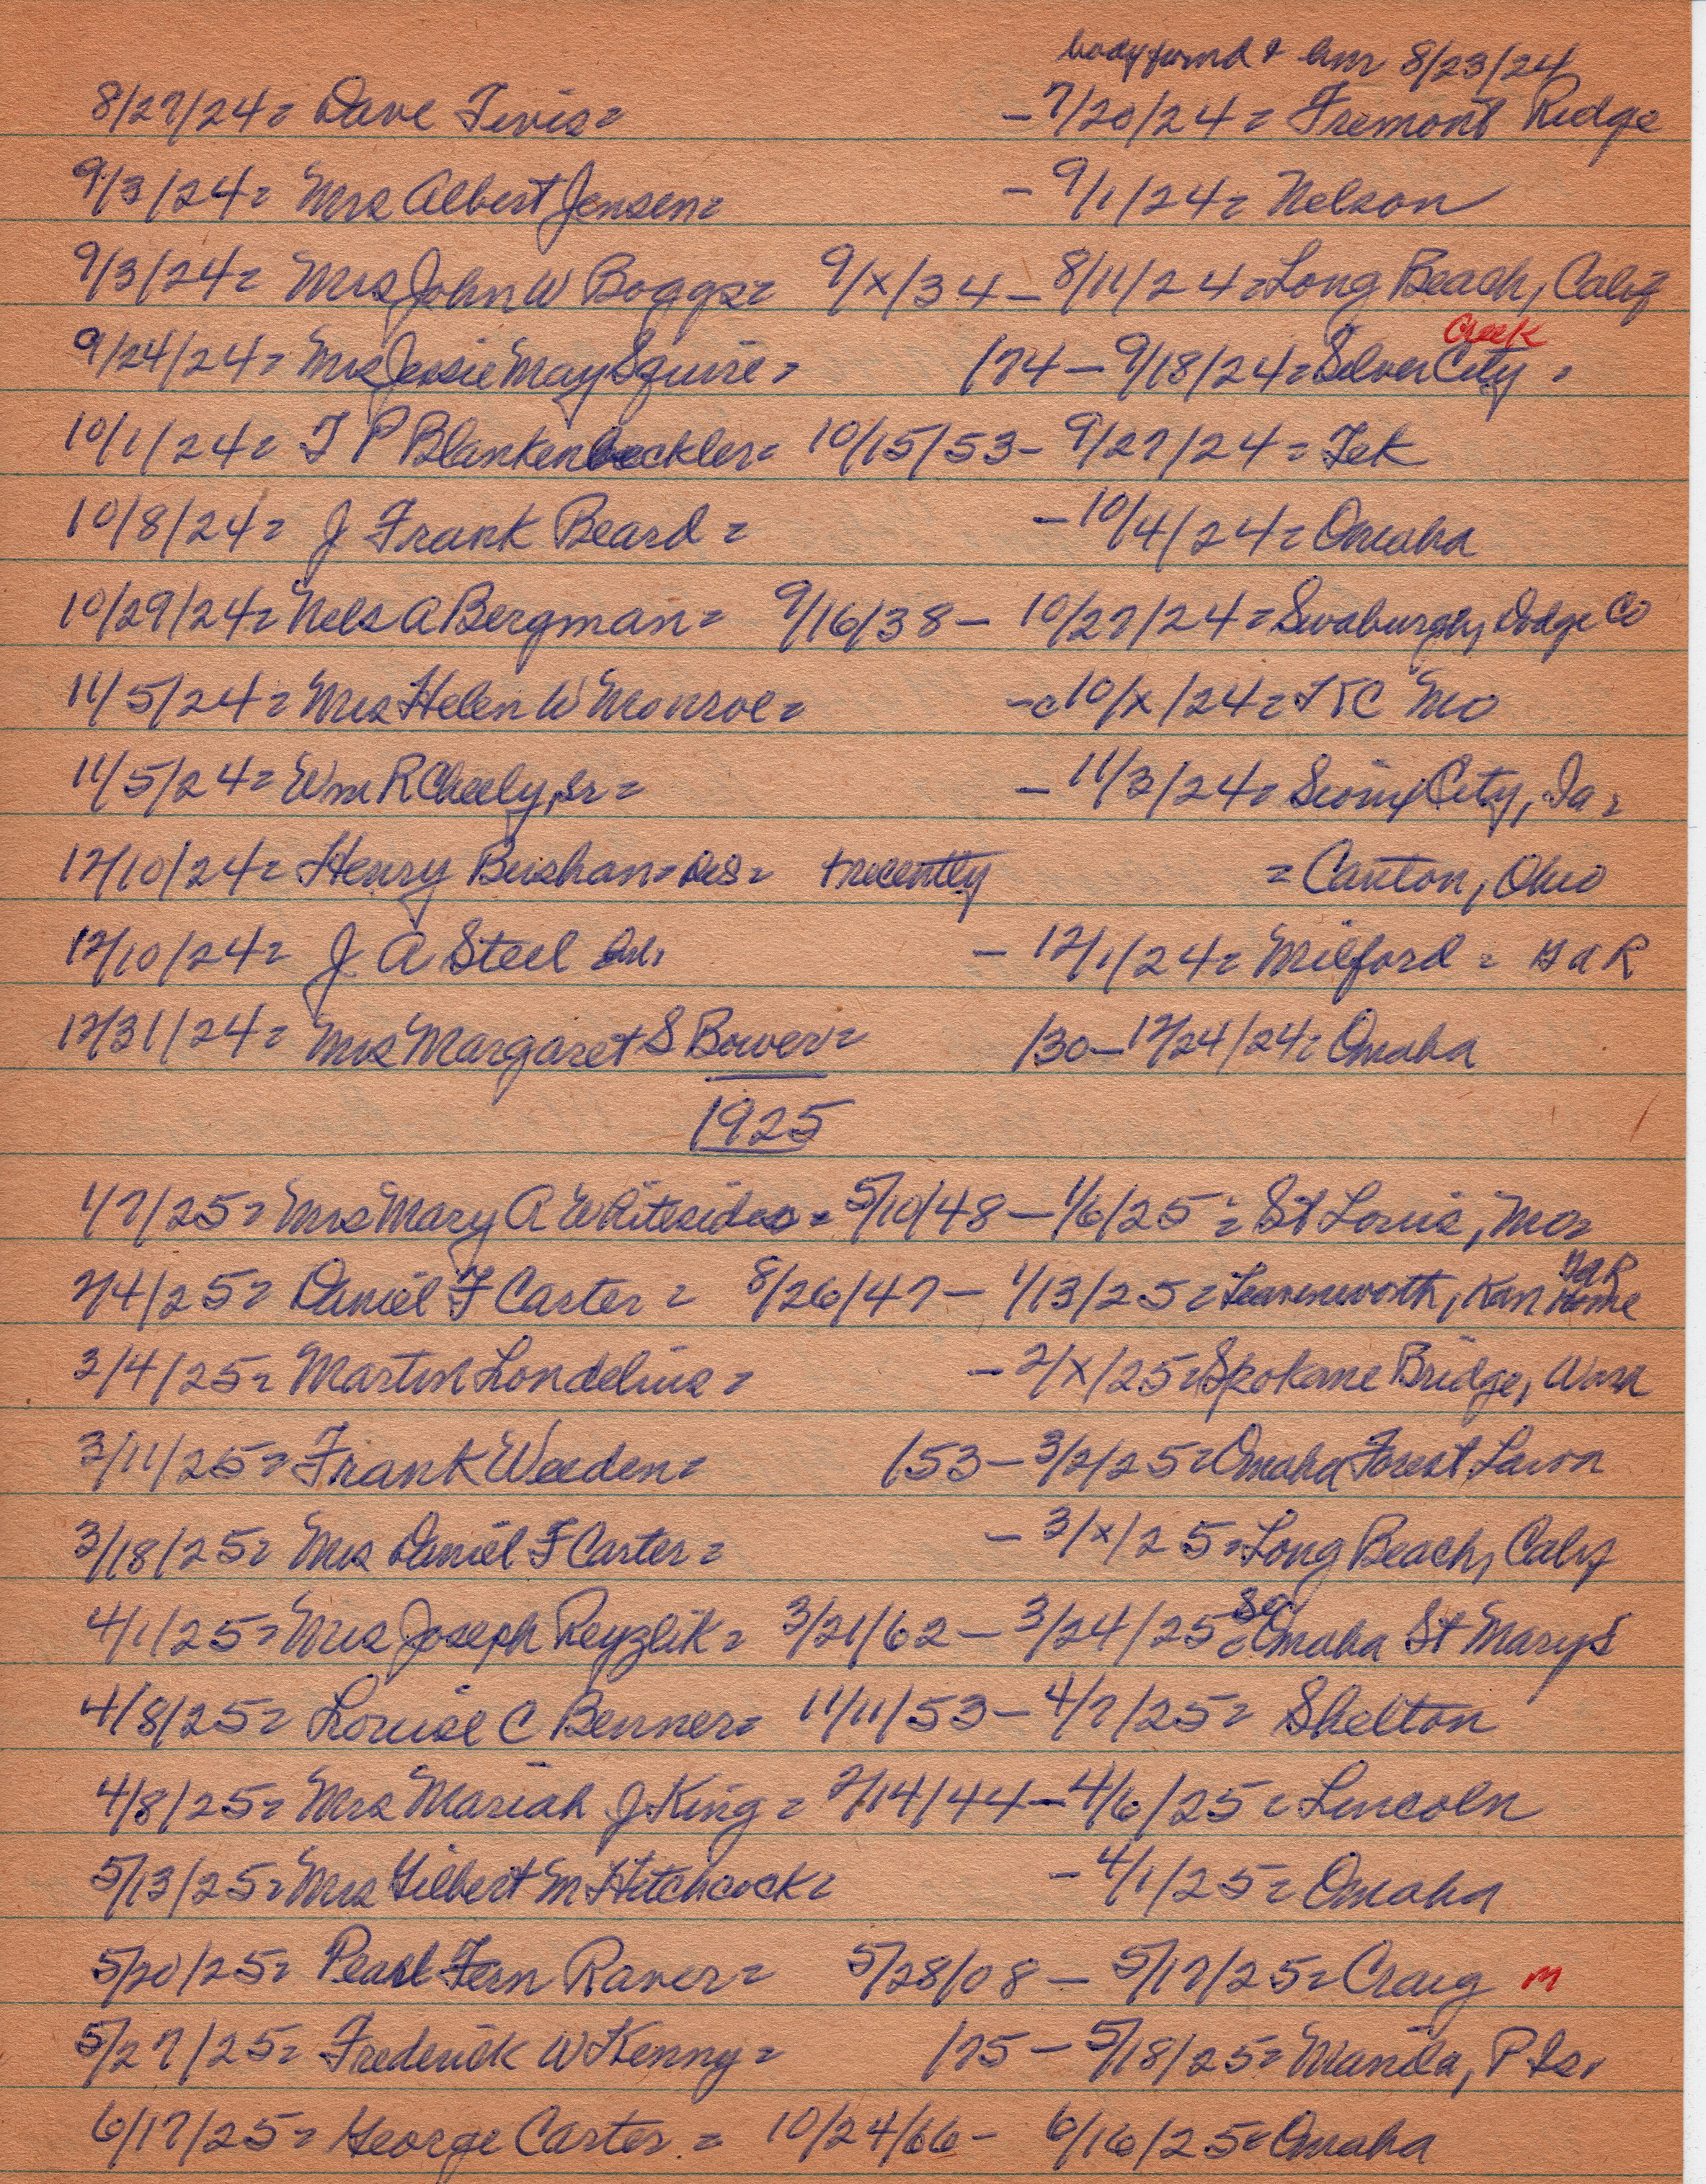 body found & bur 8/23/24
8/27/24= Dave Tivis= -7/20/24= Fremont Ridge
9/3/24= Mrs Albert Jensen= - 9/1/24= Nelson
9/3/24= Mrs John W Boggs= 9/x/34 - 8/11/24=Long Beach, Calif
Creek
9/24/24= Mrs Jessie May Squire= /74 - 9/18/24=Silver City =
10/1/24= T P Blankenbeckler= 10/15/53- 9/27/24 = Tek
10/8/24= J Frank Beard = -10/4/24= Omaha
10/29/24= Nels A Bergman= 9/16/38 - 10/27/24=Swaburgh, Dodge Co
11/5/24= Mrs Helen W Monroe= -c10/x/24= KC Mo
11/5/24= Wm R Cheely, Sr = - 11/3/24= Sioux City, Ia =
12/10/24= Henry Bushan= = trecently = Canton, Ohio
12/10/24= J. A Steel - 12/1/24= Milford = G A R
12/31/24= Mrs Margaret S Bower= /30-12/24/24= Omaha
1925
1/7/25= Mrs Mary A Whitesides= 5/10/48 - 1/6/25 = St Louis, Mo=
GAR
2/4/25= Daniel F Carter = 8/26/47 - 1/13/25=Leavenworth, Kan Home
3/4/25= Martin Londelius = - 2/x/25=Spokane Bridge, Wash
3/11/25= Frank Weeden= /53-3/2/25=Omaha Forest Lawn
3/18/25= Mrs Daniel F Carter= - 3/x/25=Long Beach, Calif
So
4/1/25= Mrs Joseph Reyzlik= 3/21/62 - 3/24/25=Omaha St Marys
4/8/25= Louise C Benner= 11/11/53- 4/7/25= Shelton
4/8/25= Mrs Mariah J King = 2/14/44-4/6/25= Lincoln
5/13/25= Mrs Gilbert M Hitchcock= - 4/1/25= Omaha
5/20/25= Pearl Fern Raver= 5/28/08 - 5/17/25= Craig m
5/27/25= Frederick W Kenny= /75 - 5/18/25= Manila, P Is.
6/17/25= George Carter = 10/24/66- 6/16/25=Omaha